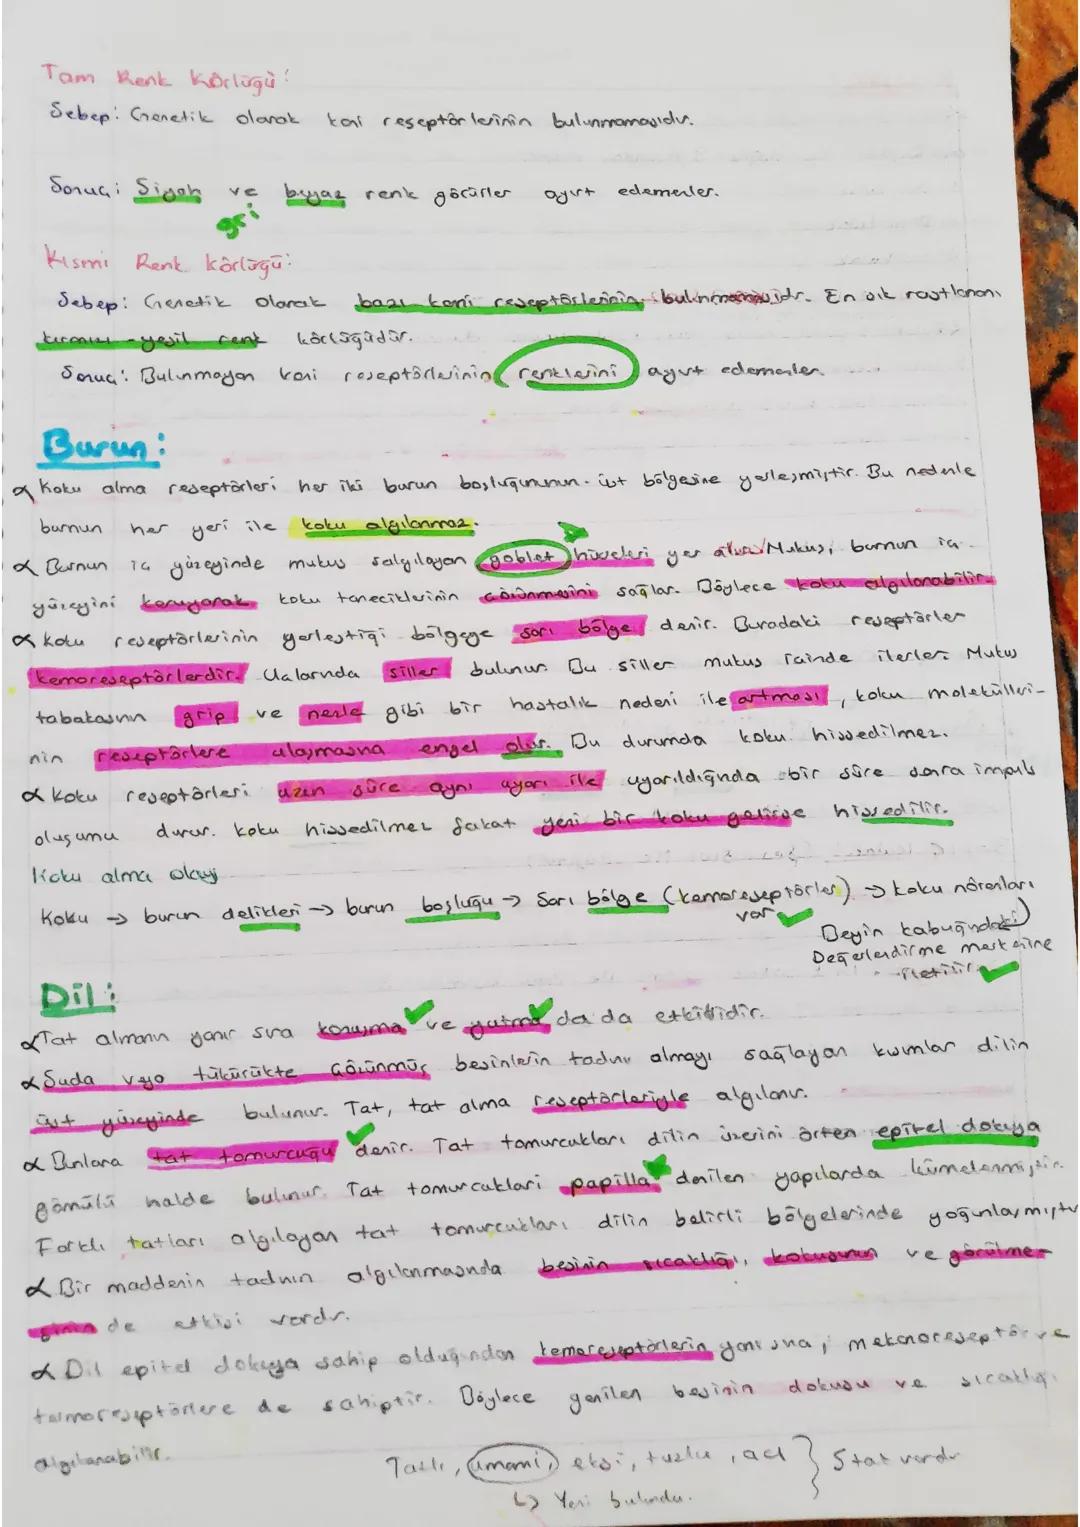 Tam Renk Körlüğü:
Sebep: Genetik olarak koni reseptörlerinin bulunmamasıdır.
Sonuç: Siyah ve beyaz renk görürler ayırt edemezler.
gri
Kısmi Renk körlüğü:
Sebep: Genetik olarak bazı koni reseptörlerinin bulunmamasıdır. En sık rastlanan
kırmızı-yeşil renk körlüğüdür.
Sonuç: Bulunmayan koni reseptörlerinin renklerini ayırt edemezler.
Burun:
α Koku alma reseptörleri her iki burun boşluğununun üst bölgesine yerleşmiştir. Bu nedenle
burnun her yeri ile koku algılanmaz.
α Burnun iç yüzeyinde mukus salgılayan goblet hücreleri yer alır. Mukus; burnun iç
yüzeyini koruyarak koku taneciklerinin çözünmesini sağlar. Böylece koku algılanabilir.
α Koku reseptörlerinin yerleştiği bölgeye sarı bölge denir. Buradaki reseptörler
kemoreseptörlerdir. Uçlarında siller bulunur. Bu siller mukus içinde ilerler. Mukus
tabakasının grip ve nezle gibi bir hastalık nedeni ile artması, koku molekülleri-
nin reseptörlere ulaşmasına engel olur. Bu durumda koku hissedilmez.
α Koku reseptörleri uzun süre aynı uyarı ile uyarıldığında bir süre sonra impuls
oluşumu durur. Koku hissedilmez fakat yeni bir koku gelirse hissedilir.
Koku alma olayı
Koku → burun delikleri → burun boşluğu → Sarı bölge (kemoreseptörler) → koku nöronları
var
Beyin kabuğundaki
Değerlendirme merkezine
iletilir.
Dil:
α Tat almanın yanır sıra konuşma ve yutma da da etkilidir.
α Suda veya tükürükte çözünmüş besinlerin tadını almayı sağlayan kısımlar dilin
üst yüzeyinde bulunur. Tat, tat alma reseptörleriyle algılanır.
α Bunlara tat tomurcuğu denir. Tat tomurcukları dilin üzerini örten epitel dokuya
gömülü halde bulunur. Tat tomurcukları papilla denilen yapılarda kümelenmiştir.
Farklı tatları algılayan tat tomurcukları dilin belirli bölgelerinde yoğunlaşmıştır
α Bir maddenin tadının algılanmasında besinin sıcaklığı, kokusunun ve görülme-
sinin de etkisi vardır.
α Dil epitel dokuya sahip olduğundan kemoreseptörlerin yanı sıra, mekanoreseptör ve
termoreseptörlere de sahiptir. Böylece yenilen besinin dokusu ve sıcaklığı
algılanabilir.
Tatlı, umami, ekşi, tuzlu, acı } 5 tat vardır
↳ Yeni bulundu.